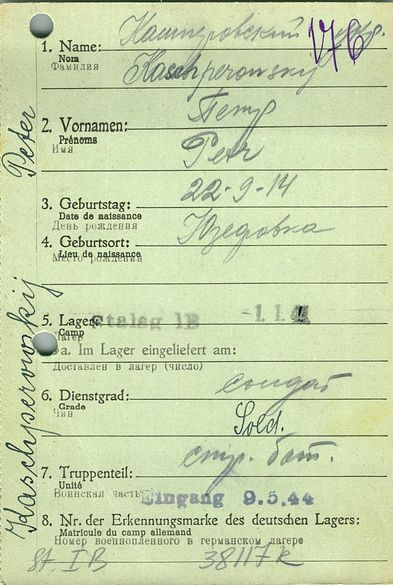 176
Кашперовский
1. Name:
Nom
Фамилия
Kaschperowsky
Петр
2. Vornamen:
Prénoms
Имя
Petr
22-9-14
3. Geburtstag:
Date de naissance
День рождения
4. Geburtsort:
Lieu de naissance
Место рождения
5. Lager:
Camp
Лагерь
Stalag IB -1.1.44
a. Im Lager eingeliefert am:
Доставлен в лагерь (число)
солдат
6. Dienstgrad:
Grade
Чин
Sold.
стр. бат.
7. Truppenteil:
Unité
Воинская часть
Eingang 9.5.44
8. Nr. der Erkennungsmarke des deutschen Lagers:
Matricule du camp allemand
Номер военнопленного в германском лагере
St. I B 38117 R
Kaschperowskij Peter